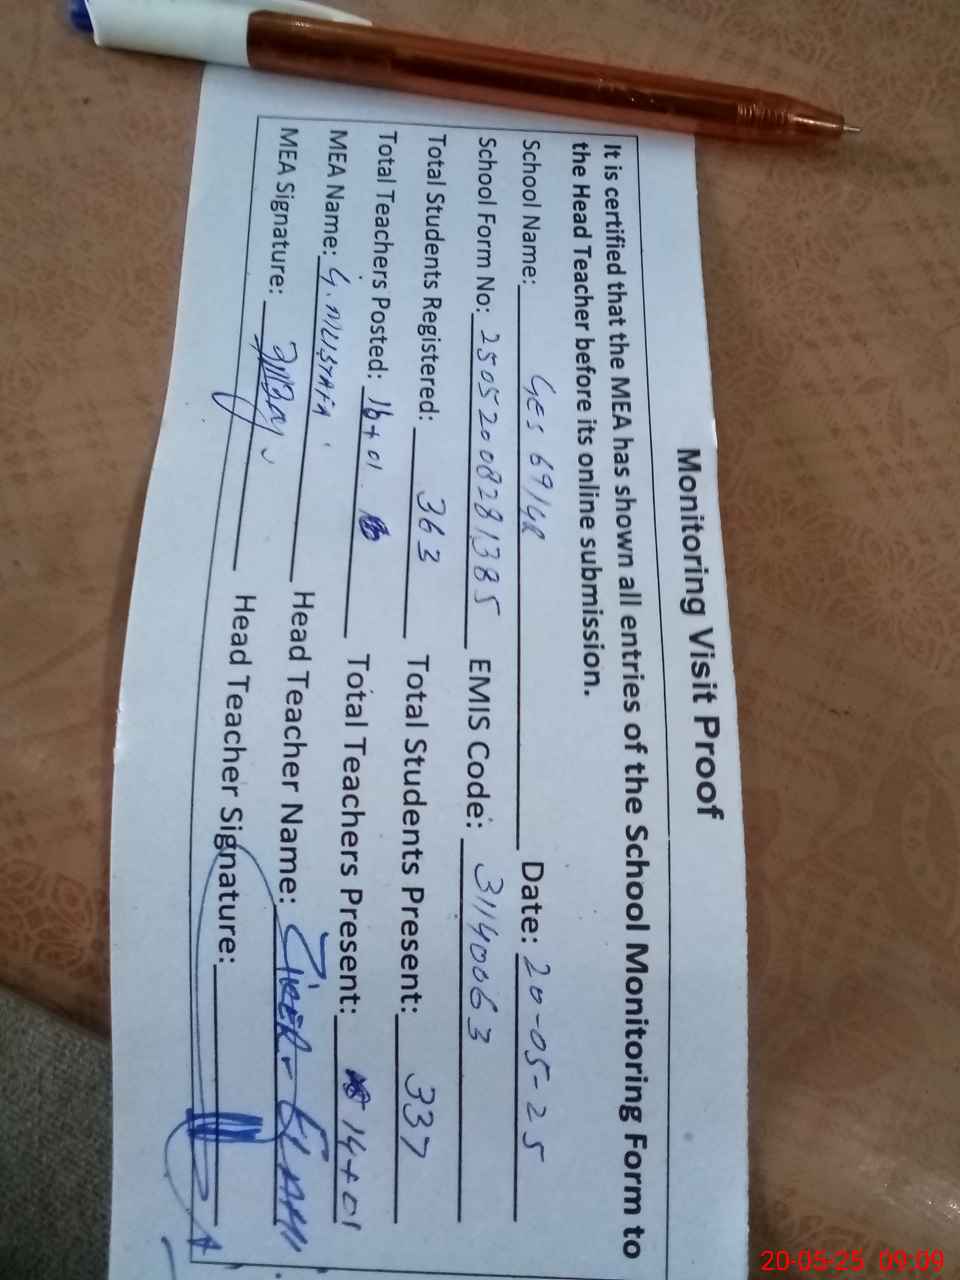 Monitoring Visit Proof
It is certified that the MEA has shown all entries of the School Monitoring Form to
the Head Teacher before its online submission.
School Name: GES 69/4R Date: 20-05-25
School Form No: 25052008281385 EMIS Code: 31140063
Total Students Registered: 363 Total Students Present: 337
Total Teachers Posted: 16+01 Total Teachers Present: 14+01
MEA Name: G. MUSTAFA Head Teacher Name:
MEA Signature: Head Teacher Signature:
20-05-25 09:09